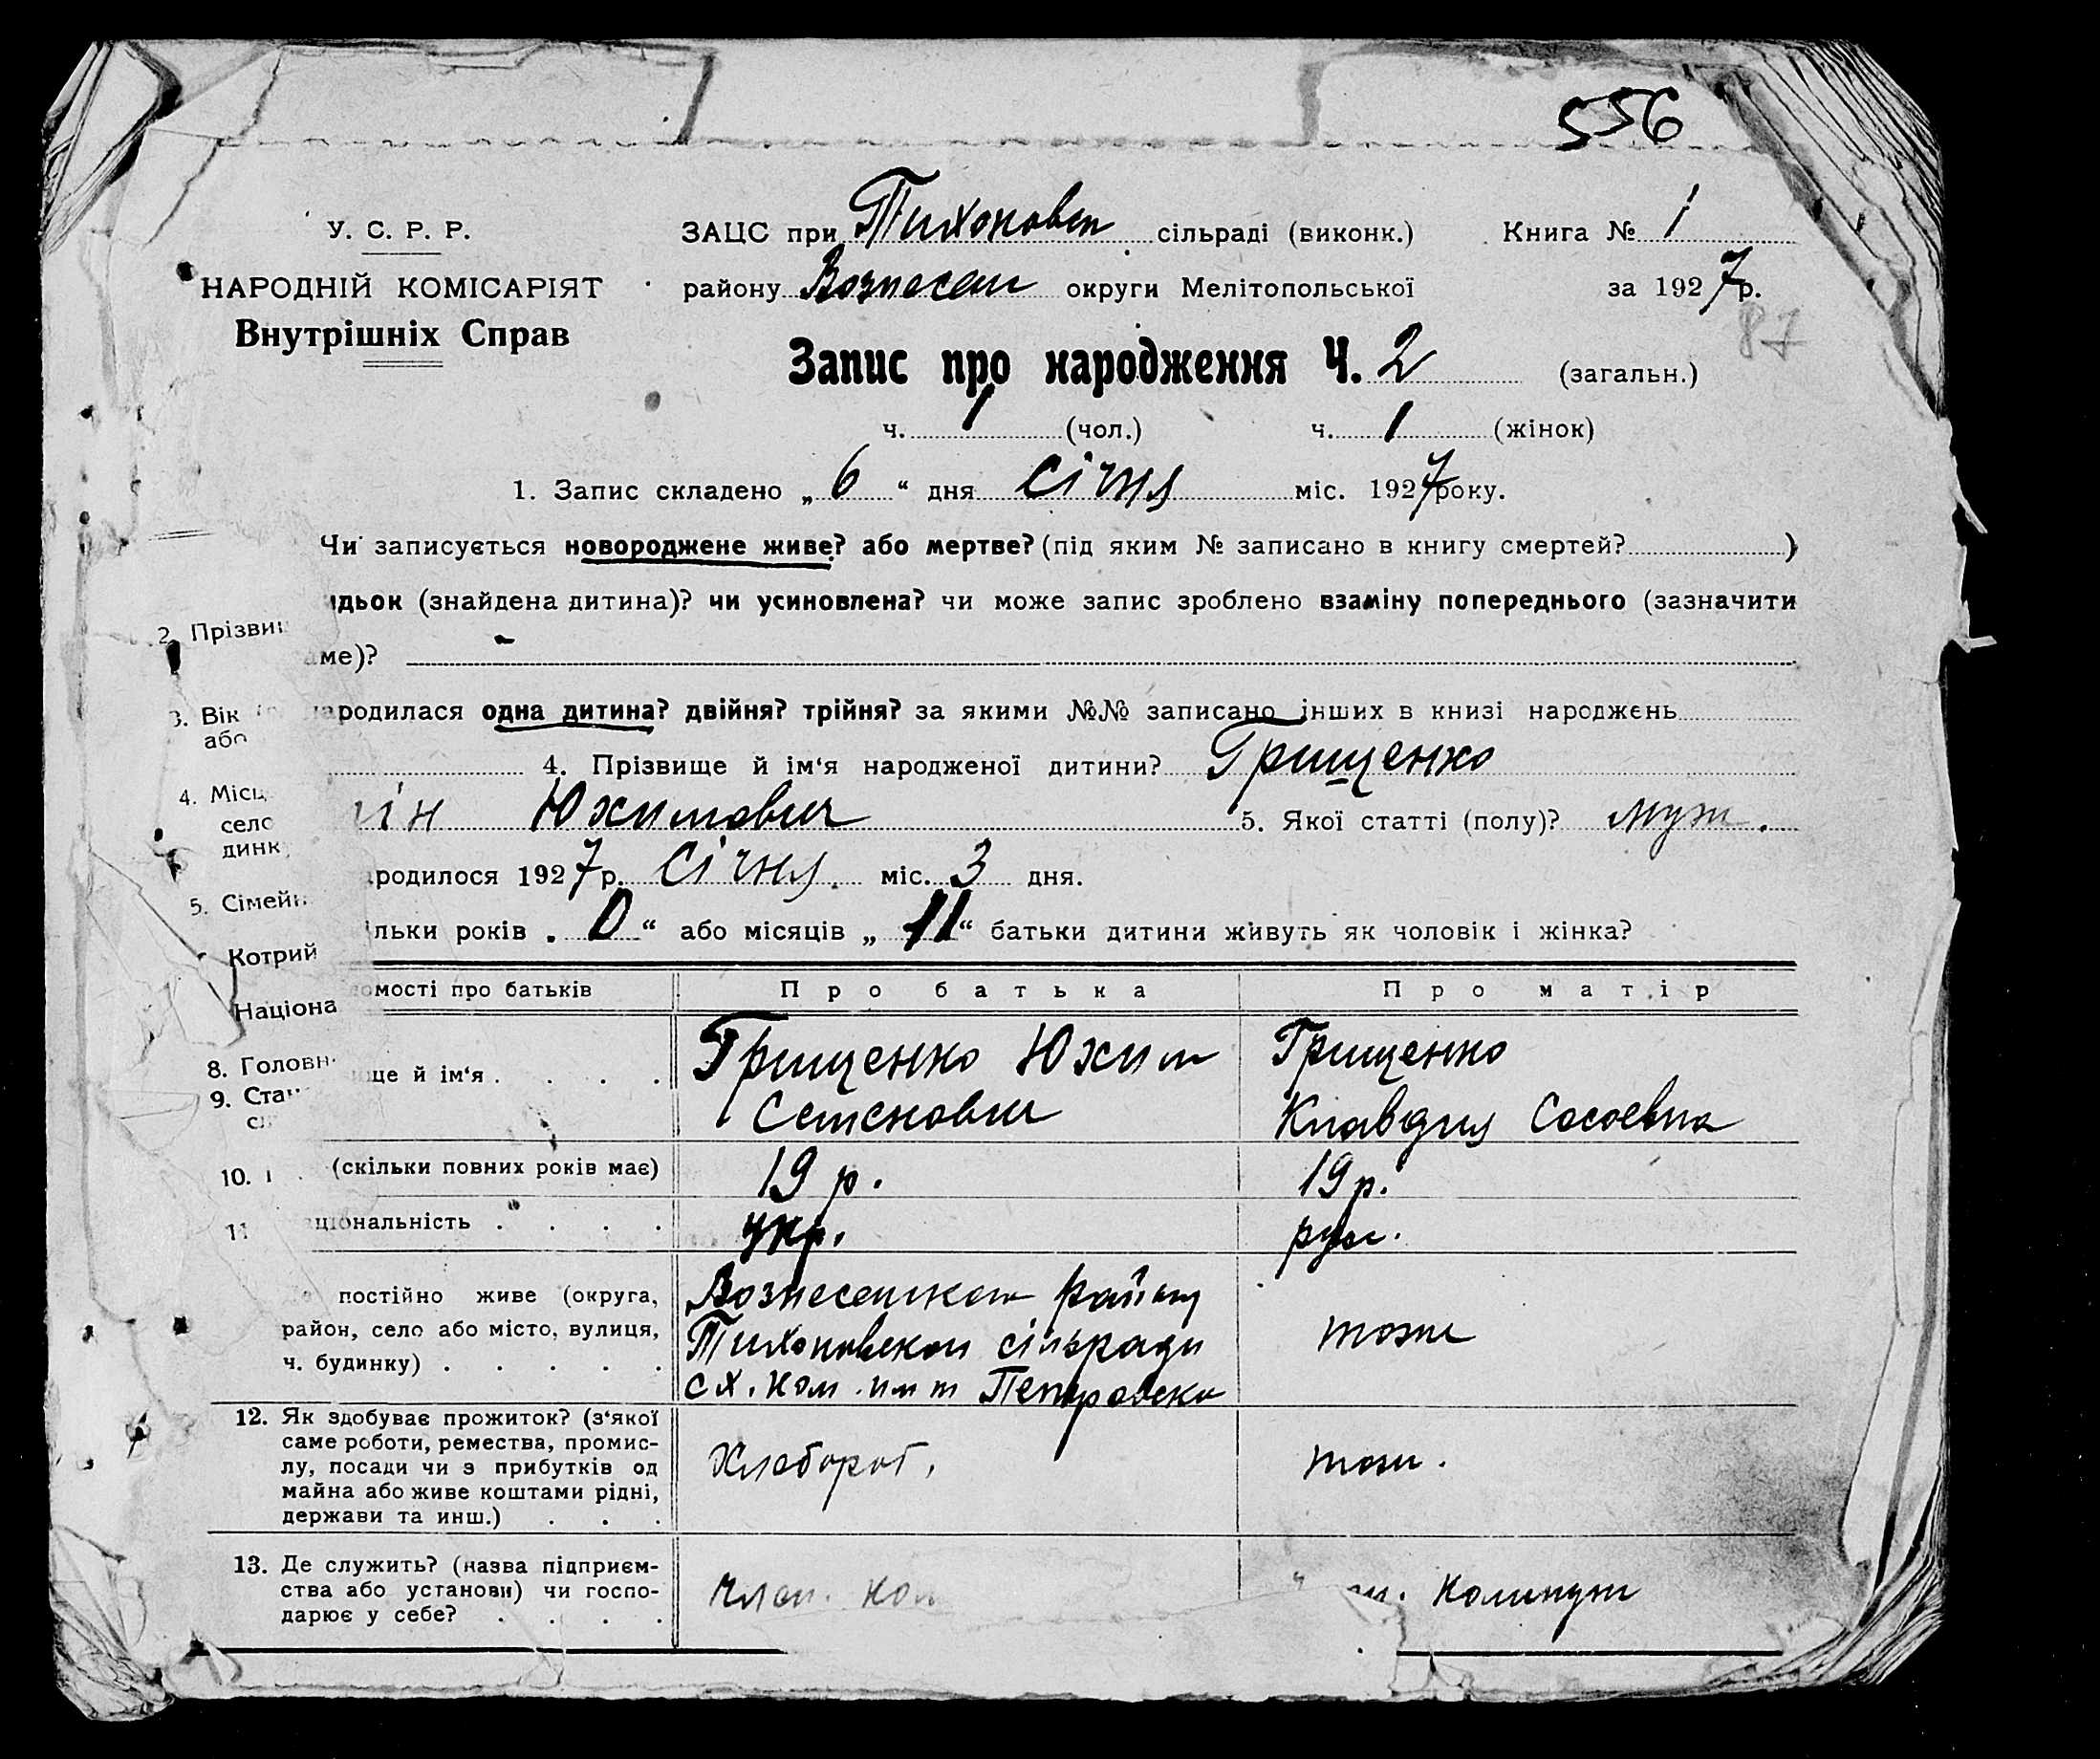 556
У. С. Р. Р.
НАРОДНІЙ КОМІСАРІЯТ
Внутрішніх Справ
ЗАЦС при Тихоновск сільраді (виконк.) Книга № 1
району Вознесен округи Мелітопольської за 1927р.
87
Запис про народження Ч. 2 (загальн.)
ч. 1 (чол.) ч. 1 (жінок)
1. Запис складено „6“ дня січня міс. 1927року.
Чи записується новороджене живе? або мертве? (під яким № записано в книгу смертей? )
идьок (знайдена дитина)? чи усиновлена? чи може запис зроблено взаміну попереднього (зазначити
2. Прізвищ
аме)? -
3. Вік
народилася одна дитина? двійня? трійня? за якими №№ записано інших в книзі народжень
або
4. Прізвище й ім‘я народженої дитини? Грищенко
4. Місц
ін Юхимович 5. Якої статті (полу)? муж.
село
динк
ародилося 1927р. січня міс. 3 дня.
5. Сімейн
ільки років „0“ або місяців „11“ батьки дитини живуть як чоловік і жінка?
Котрий
омості про батьків Про батька Про матір
Націона
8. Головн
ище й ім‘я . . . . Грищенко Юхим Грищенко
9. Стан
Семенович Клавдия Сосоевна
10. (скільки повних років має) 19 р. 19 р.
11 аціональність . . . . укр. рус.
постійно живе (округа, Вознесенском району
район, село або місто, вулиця, Тихоновской сільради тоже
ч. будинку) . . . . . с х. ком. имт Петровско
12. Як здобуває прожиток? (з‘якої
саме роботи, ремества, промис-
лу, посади чи з прибутків од Хлебороб. тоже.
майна або живе коштами рідні,
держави та инш.) . . .
13. Де служить? (назва підприєм-
ства або установи) чи госпо- Член. ком . Коммуни
дарює у себе? . . . .